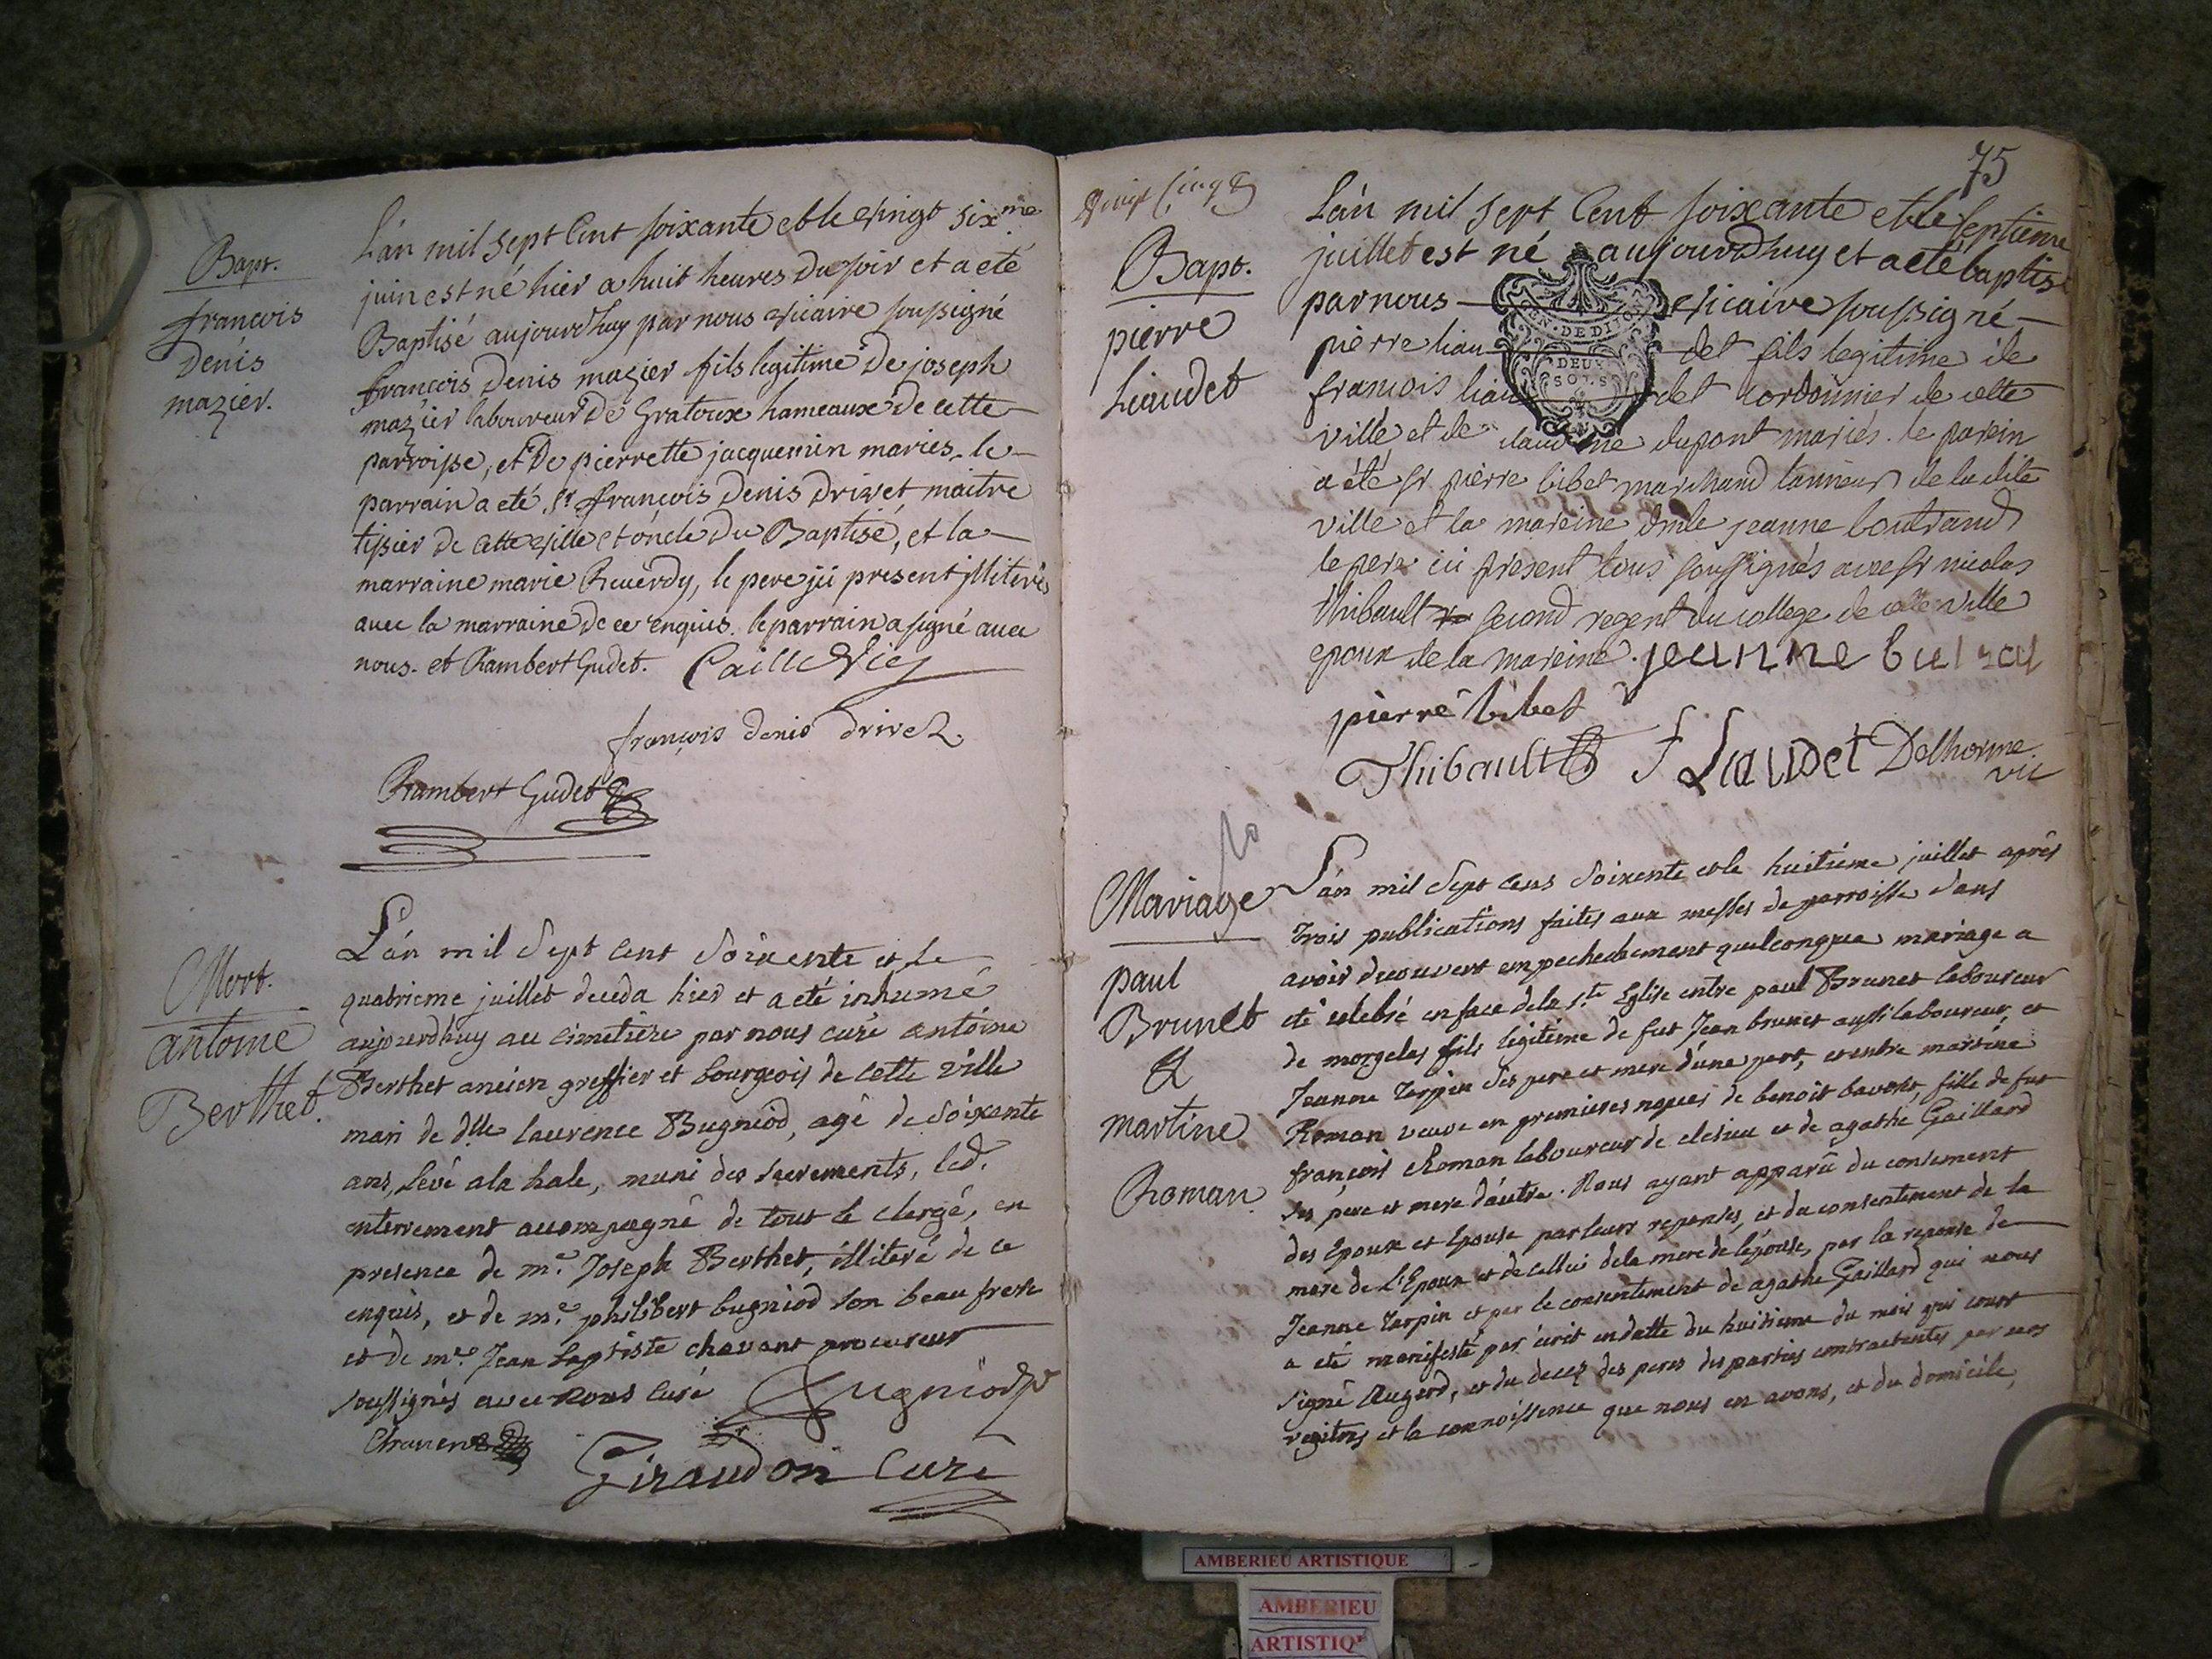 Bapt.
francois
Denis
mazier.
L'an mil sept Cent soixante et le vingt six.me
juin est né hier a huit heures Du soir et a eté
Baptisé aujourdhuy par nous vicaire soussigné
francois Denis mazier fils legitime De joseph
mazier laboureur De Gratoux hameaux De cette
parroisse, et De pierrette jacquemin mariés. le
parrain a eté Sr francois Denis Drivet maitre
tissier De cette ville et oncle Du Baptisé, et la
marraine marie Reverdy, le pere ici present illiterés
avec la marraine De ce enquis. le parrain a signé avec
nous. et Rambert Gudet. Caille Vic
françois denis drivet
Rambert Gudet
Mort.
antoine
Berthet.
L'án mil Sept Cent Soixente et Le
quatrieme juillet deceda hier et a eté inhumé
aujourdhuy au cimetiere par nous curé antoine
Berthet ancien greffier et bourgeois de Cette Ville
mari de dlle laurence Bugniod, agé de Soixente
ans, levé a la hale, muni des sacrements, led.
enterrement accompagné de tout le clergé, en
presence de me. Joseph Berthet, illiteré de ce
enquis, et de me. philibert bugniod son beau frere
et de me. Jean baptiste chavant procureur
soussignés avec nous Curé Bugniod
Chavent
Giraudon Curé
75
Vingt Cinq
Bapt.
pierre
Liaudet
L'an mil sept Cent soixante et le septieme
juillet est né aujourdhuy et a eté baptisé
par nous vicaire soussigné
GEN. DE DIJON
DEUX
SOLS
pierre liau det fils legitime de
francois liau det cordonnier de cette
ville et de claudine dupont mariés. le parein
a été sr pierre bibet marchand tanneur de la dite
ville et la mareine dmlle jeanne boutrand
le pere ici présent tous soussignés avec sr nicolas
thibault second regent du college de cette ville
epoux de la mareine. jeanne butrau
pierre bibet
Thibault f Liaudet Delhorme
vic
Mariage
paul
Brunet
&
martine
Roman
L'án mil Sept Cens Soixente et le huitiéme juillet aprés
trois publications faites aux messes de parroisse sans
avoir decouvert empechechement quelconque mariage a
eté celebré en face de la s.te Eglise entre paul Brunet laboureur
de morgelas fils légitime de fut Jean brunet aussi laboureur et
Jeanne Tarpin ses pere et mere d'une part, et entre martine
Roman veuve en premieres noces de benoit bavoset, fille de fut
françois Roman laboureur de clesieu et de agathe Gaillard
ses pere et mere d'autre. Nous ayant apparû du consement
des Epoux et Epouse par leurs reponses, et du consentement de la
mere de L'Epoux et de cellui de la mere de l'épouse, par la reponse de
Jeanne tarpin et par le consentement de agathe Gaillard qui nous
a eté manifesté par écrit en datte du huitieme du mois qui court
signé Augerd, et du decez des peres des parties contractentes par nos
registres et la connoissence que nous en avons, et du domicile,
AMBERIEU ARTISTIQUE
AMBERIEU
ARTISTIQ